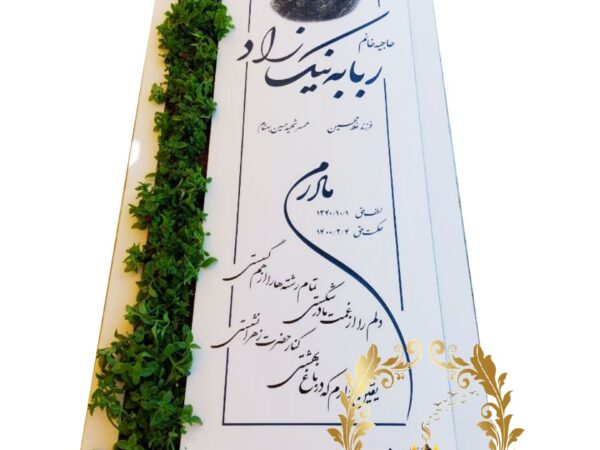 حاجیه خانم
ربابه نیک زاد
فرزند غلامحسین
همسر شهید حسین بهنام
مادرم
لطف حق ۱۳۴۰/۱۰/۱
حکمت حق ۱۴۰۰/۲/۴
تمام رشته ها را از هم گسستی
دلم را از غمت مادر شکستی
کنار حضرت زهرا نشستی
یقین دارم که در باغ بهشتی